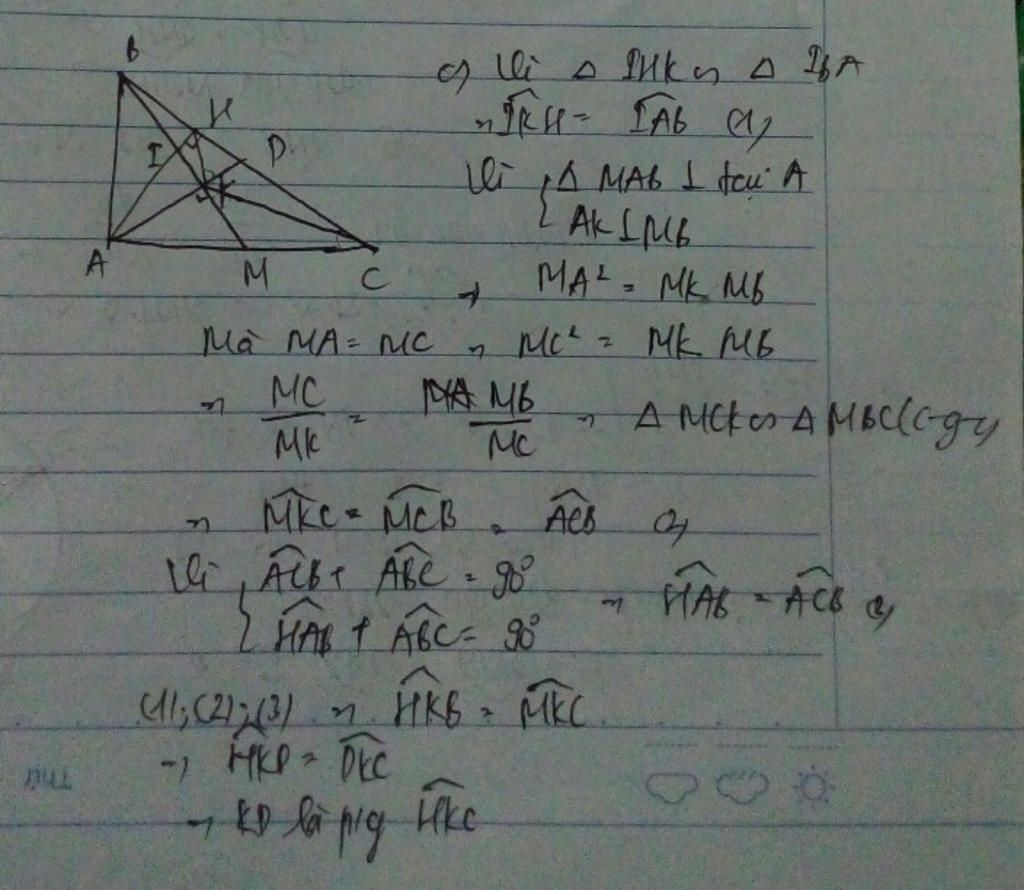 B
H
I
D
K
A
M
C
c) Vì △ IHK ∽ △ IBA
→ IKH = IAB (1)
Vì { △ MAB ⊥ tại A
AK ⊥ MB
→ MA² = MK MB
Mà MA = MC → MC² = MK MB
→ MC/MK = MB/MC → △ MCK ∽ △ MBC (c-g-c)
→ MKC = MCB = ACB (2)
Vì { ACB + ABC = 90°
HAB + ABC = 90° → HAB = ACB (3)
(1); (2); (3) → HKB = MKC
→ HKD = DKC
→ KD là p/g HKC